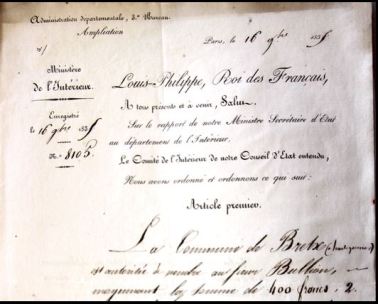 Administration départementale, 3e Bureau.
Ampliation
Paris, le 16 9bre 183
Ministère
de l'Intérieur.
Enregistré
le 16 9bre 183
No. 8105.
Louis-Philippe, Roi des Français,
A tous présents et à venir, Salut.
Sur le rapport de notre Ministre Secrétaire d'Etat
au département de l'Intérieur.
Le Comité de l'Intérieur de notre Conseil d'Etat entendu,
Nous avons ordonné et ordonnons ce qui suit:
Article premier.
La Commune de
est autorisée à vendre au
moyennant la somme de 400 francs. 2.